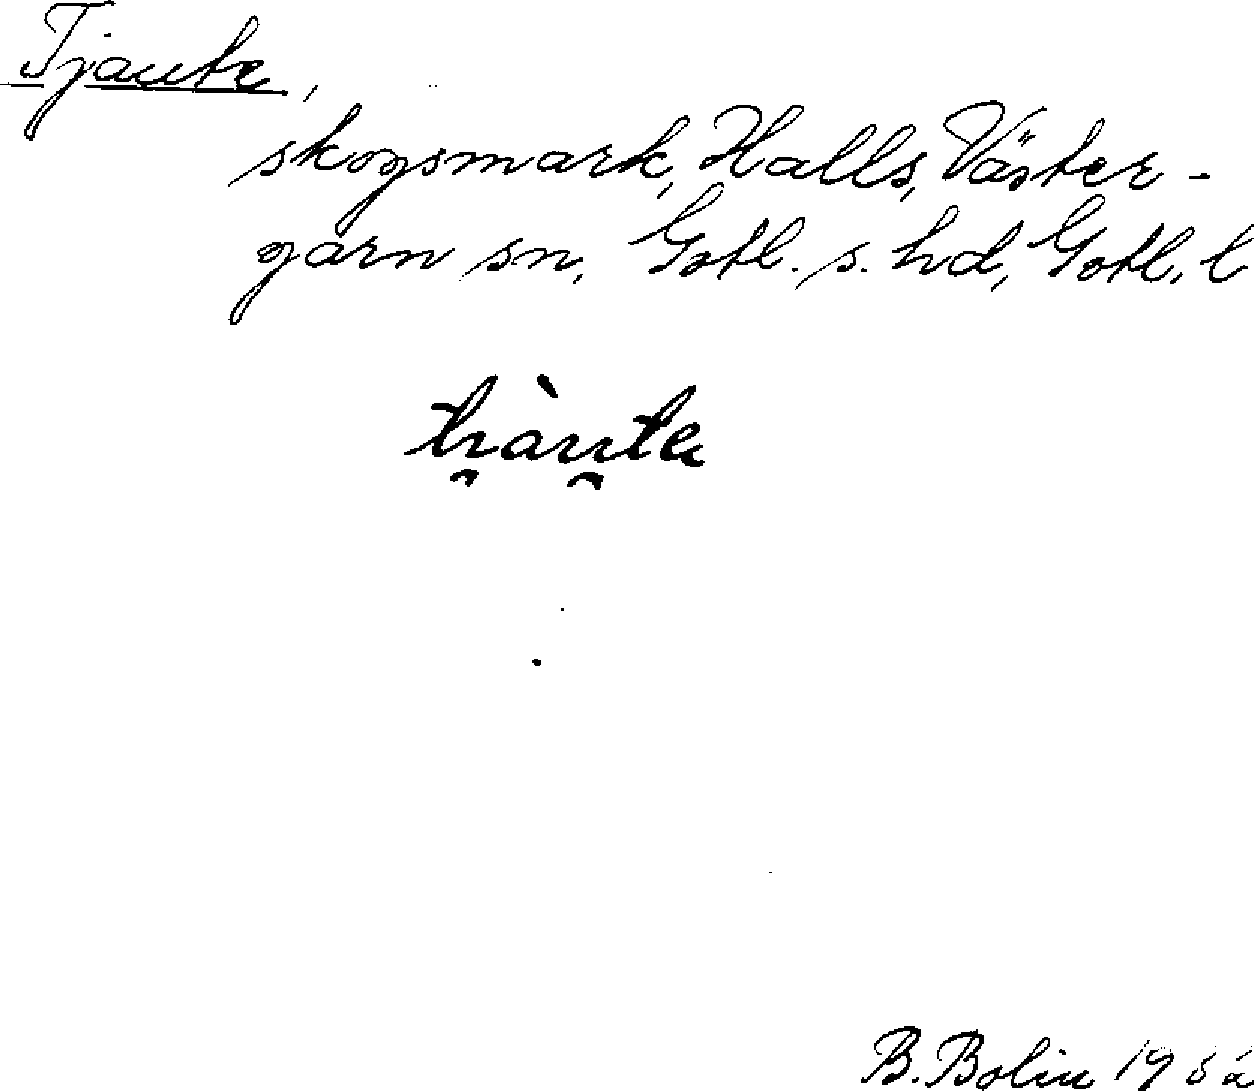 Tjaute,
skogsmark, Halls, Väster-
garn sn, Gotl. s. hd, Gotl. l
B. Bolin